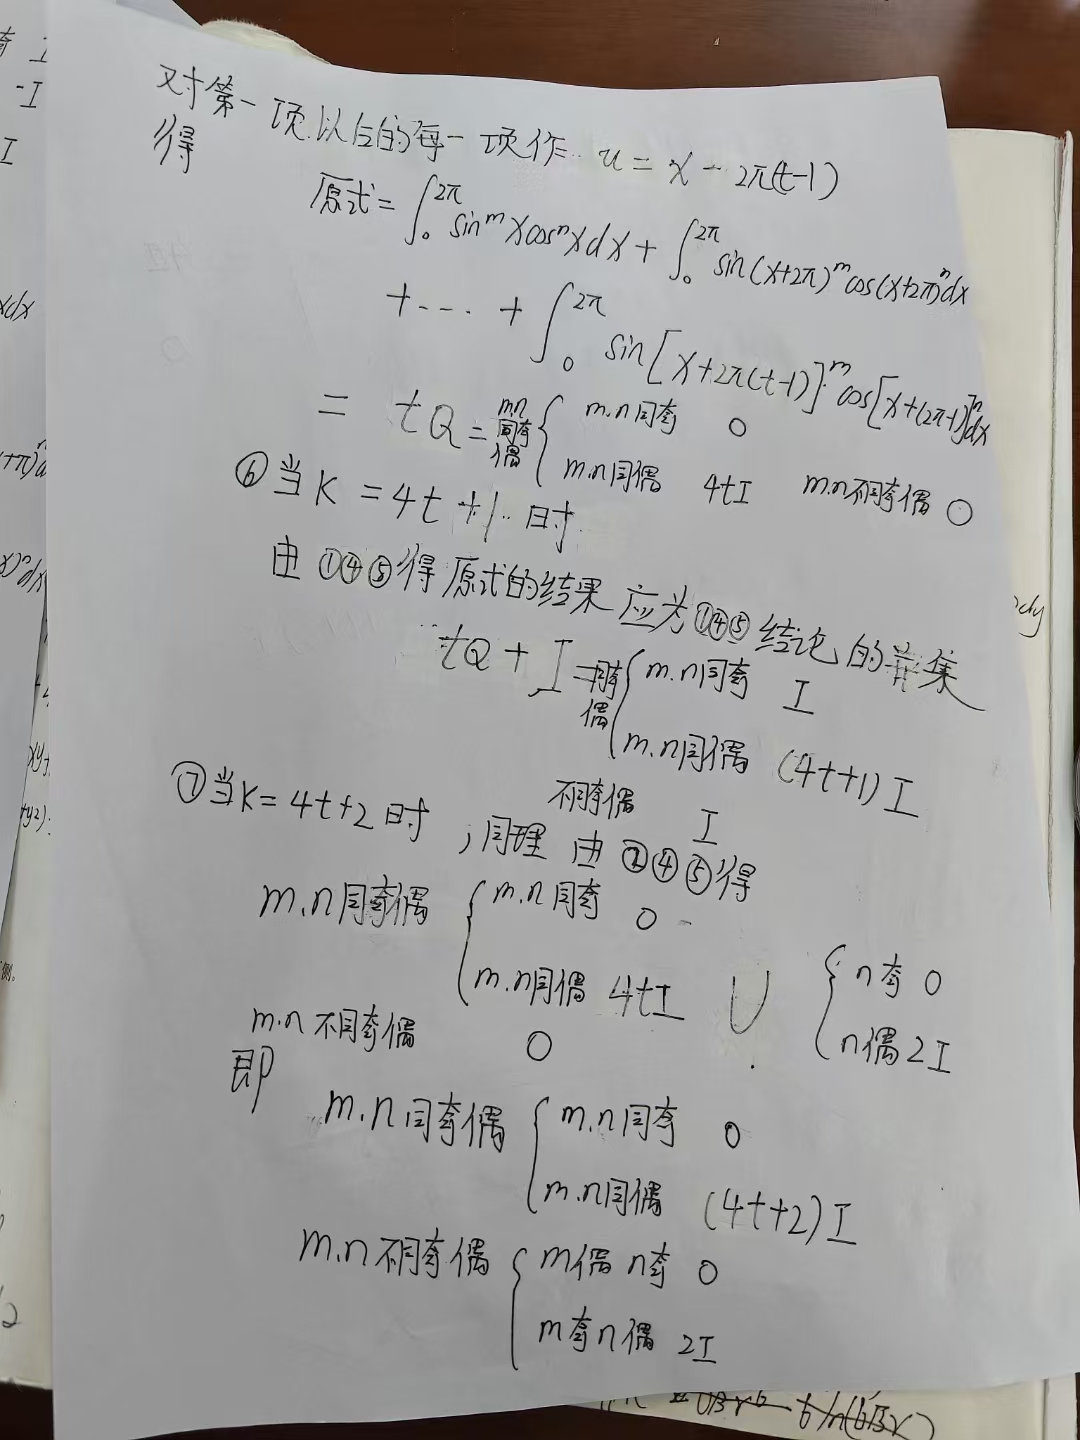 对第一项以后的每一项作 u = x - 2π(t-1)
得
原式 = ∫₀^{2π} sin^m x cos^n x dx + ∫₀^{2π} sin(x+2π)^m cos(x+2π)^n dx
+ ... + ∫₀^{2π} sin[x+2π(t-1)]^m cos[x+(2π-1)]^n dx
= tQ = m n 同奇偶 { m.n同奇 0
m.n同偶 4tI m.n不同奇偶 0
⑥当K = 4t+1 时
由①④⑤得原式的结果应为①④⑤结论的并集
tQ + I = 同奇偶 { m.n同奇 I
m.n同偶 (4t+1)I
不同奇偶 I
⑦当K=4t+2时,同理由②④⑤得
m.n同奇偶 { m.n同奇 0
m.n同偶 4tI ∪ { n奇 0
n偶 2I
m.n不同奇偶 0
即
m.n同奇偶 { m.n同奇 0
m.n同偶 (4t+2)I
m.n不同奇偶 { m偶n奇 0
m奇n偶 2I